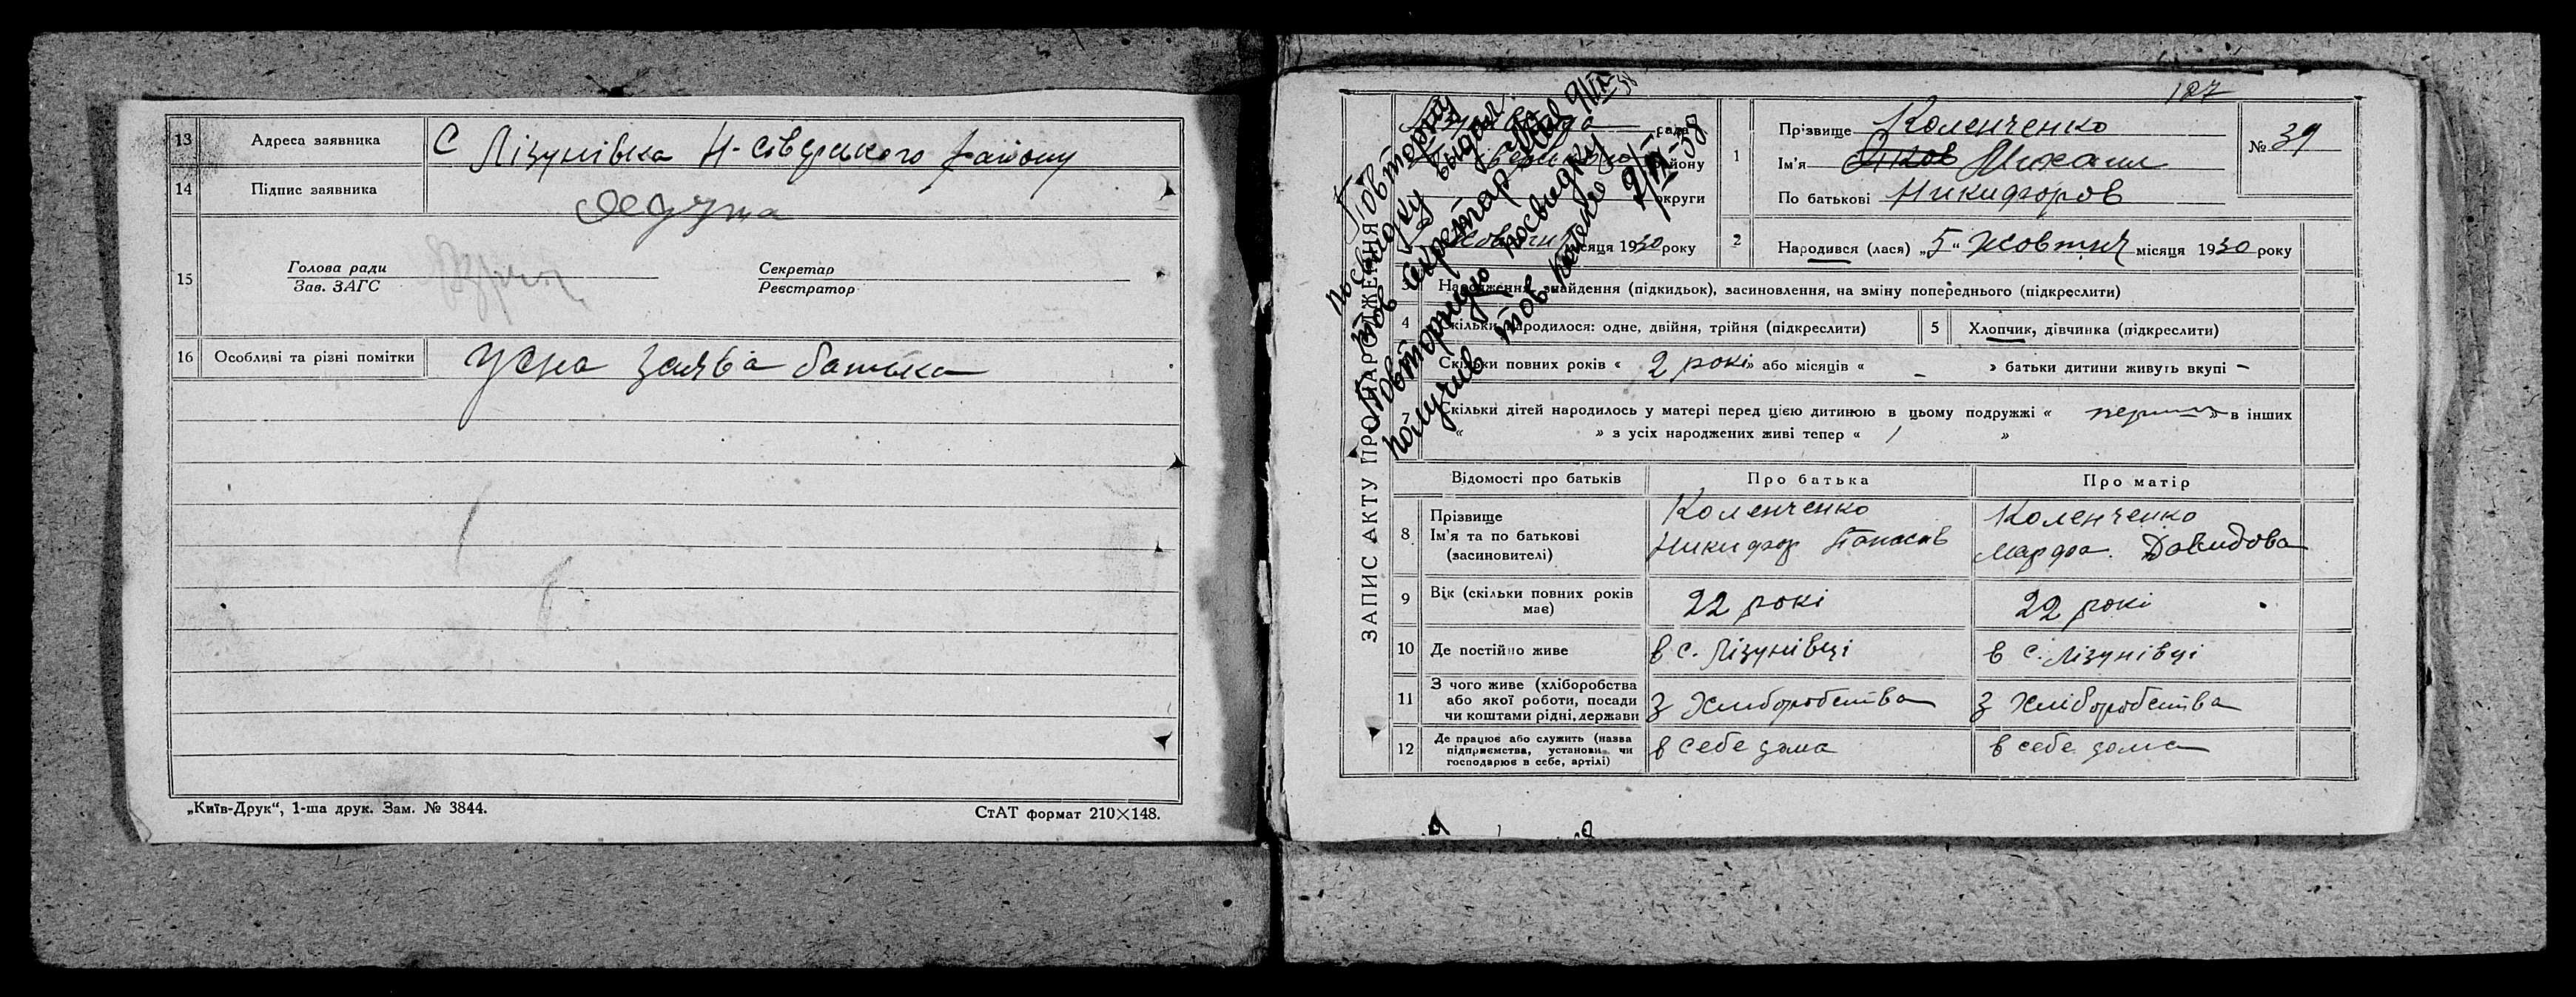 13 Адреса заявника С Лізунівка Н-сіверського району
14 Підпис заявника
15 Голова ради
Зав. ЗАГС
Секретар
Реєстратор
16 Особливі та різні помітки Усна заява батька
„Київ-Друк“, 1-ша друк. Зам. № 3844.
СтАТ формат 210×148.
187
ЗАПИС АКТУ ПРО НАРОДЖЕННЯ
Повторну
посвідку выдал
секретар
Повторную посвидку
получив тов
рада
району
округи
Жовтня місяця 1930 року
1 Прізвище Коленченко
Ім'я Яков Михаил
По батькові Никифоров
№ 39
2 Народився (лася) „5“ жовтня місяця 1930 року
3 Народження, знайдення (підкидьок), засиновлення, на зміну попереднього (підкреслити)
4 Скільки народилося: одне, двійня, трійня (підкреслити)
5 Хлопчик, дівчинка (підкреслити)
Скільки повних років « 2 рокі » або місяців « – » батьки дитини живуть вкупі –
7 Скільки дітей народилось у матері перед цією дитиною в цьому подружжі « » в інших
« » з усіх народжених живі тепер « 1 »
Відомості про батьків Про батька Про матір
8 Прізвище Коленченко Коленченко
Ім'я та по батькові Никифор Панасів Марфа Давидова
(засиновителі)
9 Вік (скільки повних років має) 22 рокі 22 рокі
10 Де постійно живе в с. Лізунівці в с. Лізунівці
11 З чого живе (хліборобства
або якої роботи, посади
чи коштами рідні, держави З Хліборобства З Хліборобства
12 Де працює або служить (назва
підприємства, установи чи
господарює в себе, артілі) в себе дома в себе дома